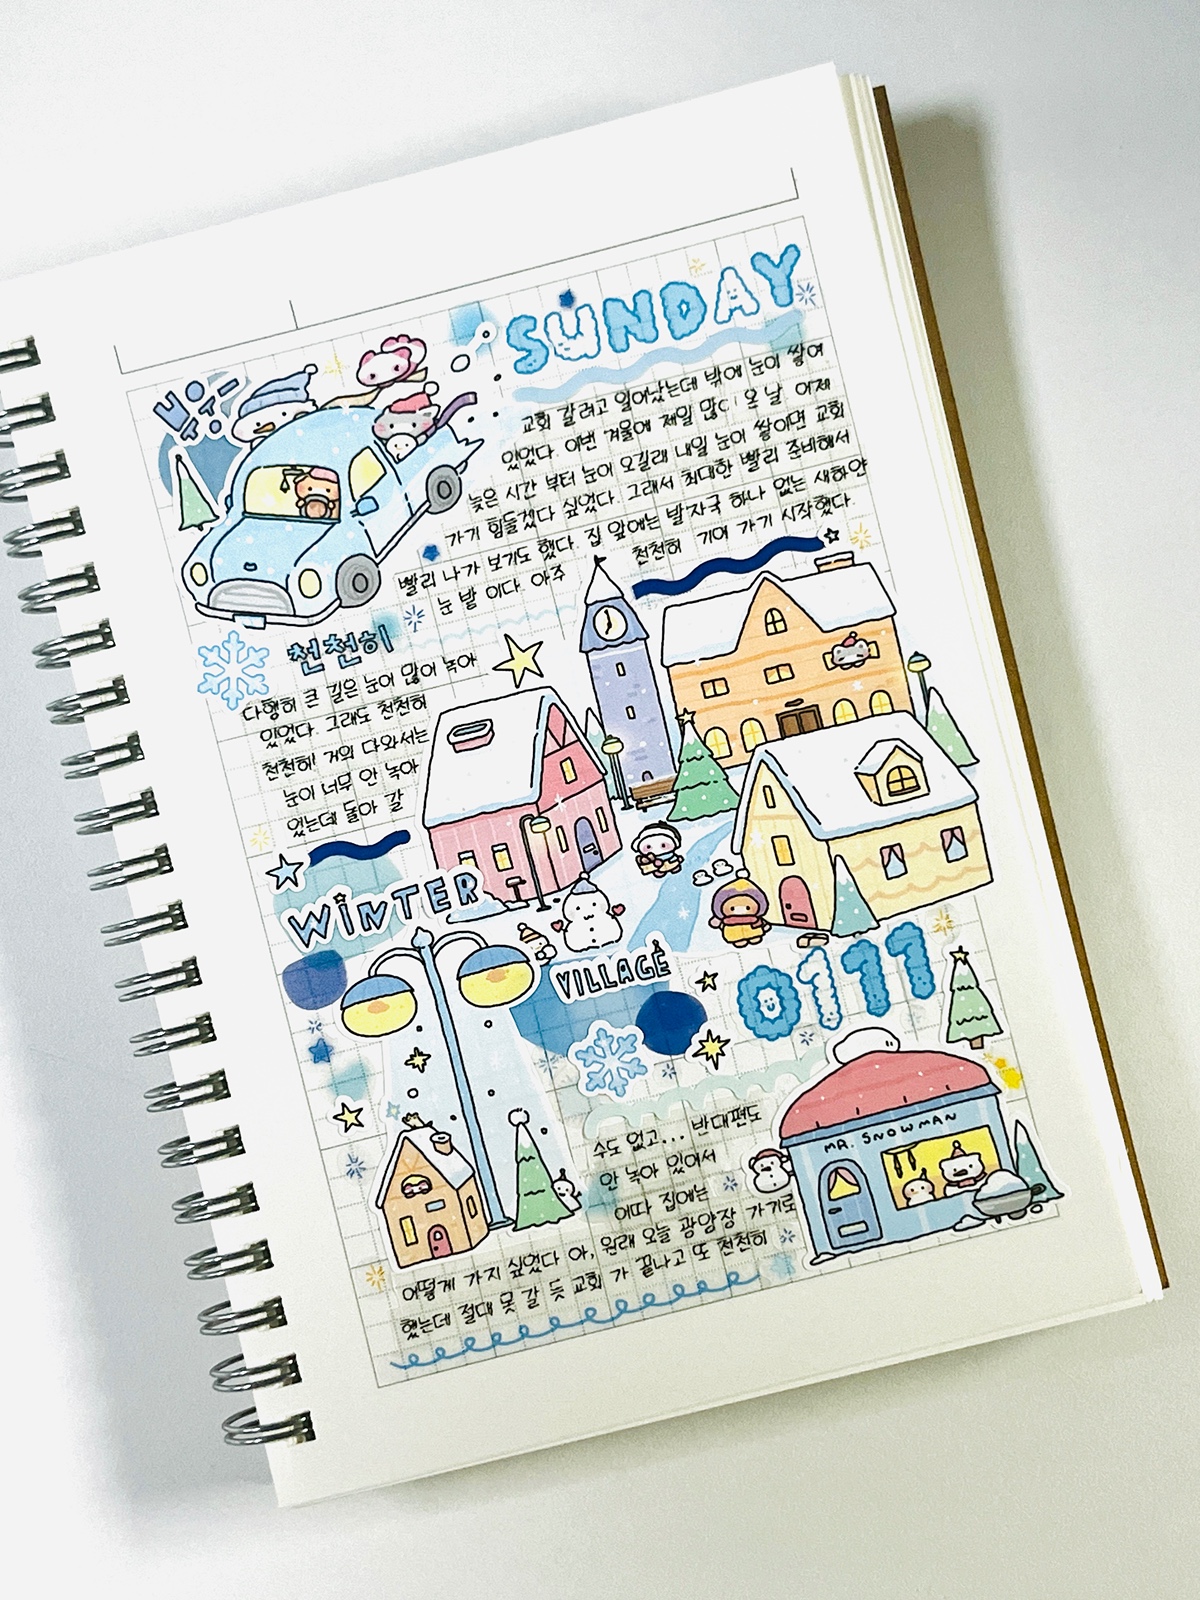 SUNDAY
부우-
교회 갈려고 일어났는데 밖에 눈이 쌓여
있었다. 이번 겨울에 제일 많이 온 날. 어제
늦은 시간 부터 눈이 오길래 내일 눈이 쌓이면 교회
가기 힘들겠다 싶었다. 그래서 최대한 빨리 준비해서
빨리 나가 보기도 했다. 집 앞에는 발자국 하나 없는 새하얀
눈 밭 이다. 아주 천천히 기어 가기 시작했다.
천천히
다행히 큰 길은 눈이 많이 녹아
있었다. 그래도 천천히
천천히! 거의 다와서는
눈이 너무 안 녹아
있었는데 돌아 갈
WINTER
VILLAGE
0111
MR. SNOWMAN
수도 없고... 반대편도
안 녹아 있어서
이따 집에는
어떻게 가지 싶었다 아, 원래 오늘 광양장 가기로
했는데 절대 못 갈 듯 교회 가 끝나고 또 천천히